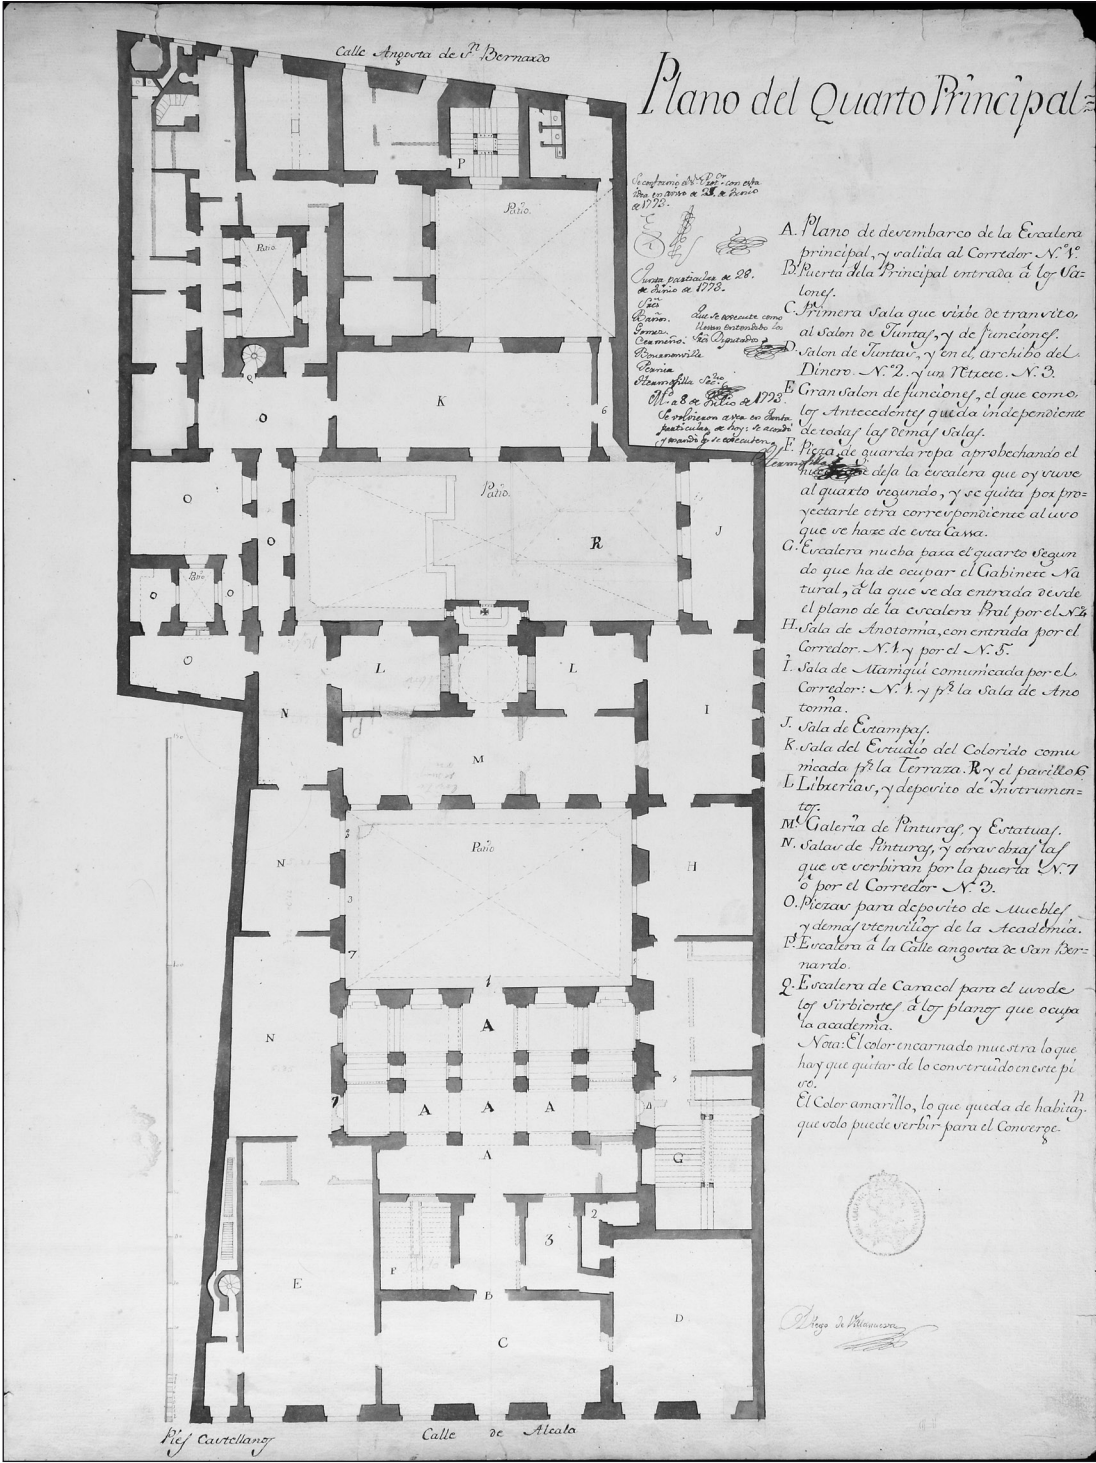 Calle Angosta de Sn. Bernardo
Plano del Quarto Principal
de 1773.
Junta particular de 28.
de Junio de 1773.
Sres
Baños.
Gomez.
Cermeño.
Bournonville
Pernia
Hermosilla Secrio
Que se execute como
Sres Diputados
M. a 8 de Julio de 1773.
Se volvieron a ver en Junta
particular de hoy: se acordó
y mandó q se executen
Hermosilla
A. Plano de desembarco de la Escalera
principal, y salida al Corredor N.º 1.º
B. Puerta de la Principal entrada â los Sa-
lones.
C. Primera sala que sirbe de transito,
al salon de Juntas, y de funciones.
D. Salon de Juntas, y en el, archibo del
Dinero. N.º 2. y un Retrete. N. 3.
E Gran salon de funciones, el que como,
los Antecedentes queda independiente
de todas las demas salas.
F. Pieza de guarda ropa aprobechando el
hueco que dexa la escalera que oy suve
al quarto segundo, y se quita por pro=
yectarle otra correspondiente al uso
que se haze de esta Cassa.
G. Escalera nueba para el quarto Segun
do que ha de ocupar el Gabinete Na
tural, â la que se da entrada desde
el plano de la escalera Pral por el N.4
H. Sala de Anotomia, con entrada por el
Corredor. N. 1. y por el N. 5.
I. Sala de Maniqui comunicada por el
Corredor: N. 1. y pr. la Sala de Ano
tomia.
J. Sala de Estampas.
K. Sala del Estudio del Colorido comu
nicada pr. la Terraza. R y el pasillo 6
L Librerias, y deposito de Instrumen=
tos.
M. Galeria de Pinturas, y Estatuas.
N. Salas de Pinturas, y otras obras las
que se serbiran por la puerta N. 7
ô por el Corredor N. 3.
O. Piezas para deposito de Muebles,
y demas utensilios de la Academia.
P. Escalera â la Calle angosta de San Ber=
nardo.
Q. Escalera de Caracol para el uso de
los sirbientes â los planos que ocupa
la academia.
Nota: El color encarnado muestra lo que
hay que quitar de lo construido en este pi
so.
El Color amarillo, lo que queda de habitan.
que solo puede serbir para el Converge
Diego de Villanueva
P
Patio.
Patio.
Q
O
K
6
O
Patio.
R
J
O
Patio
O
O
O
L
L
N
I
M
3
Patio
N
H
3
7
1
A
N
5
7
A
A
A
4
A
G
2
3
F
E
B
D
C
Pies Castellanos
Calle de Alcala